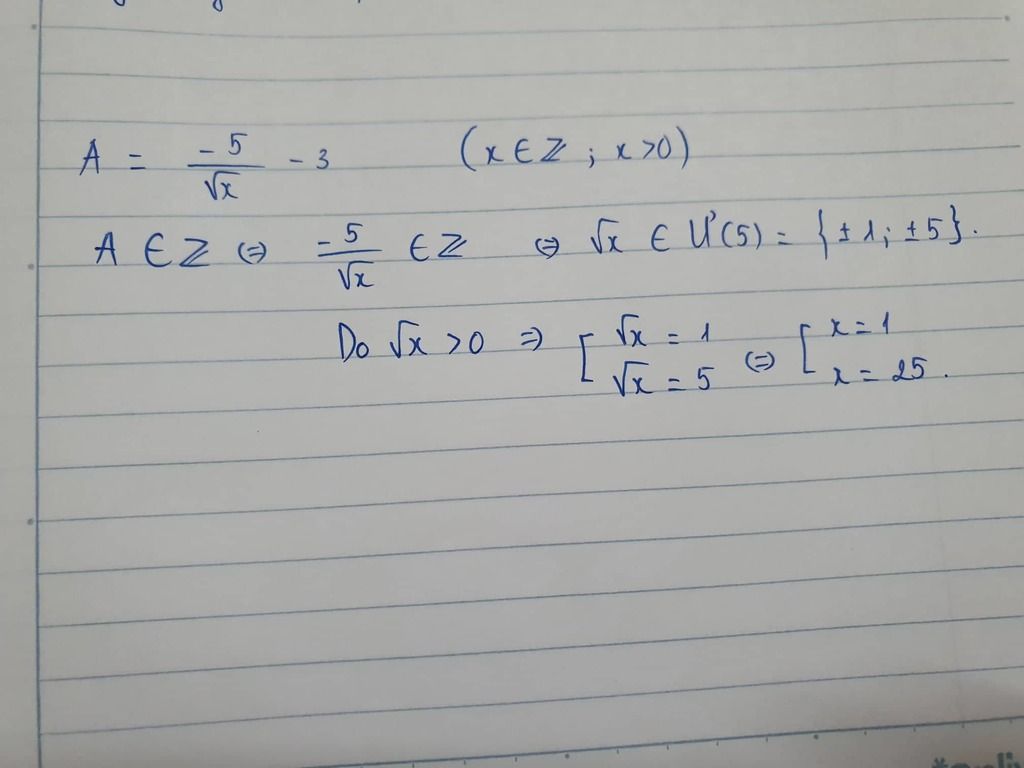 A = -5/√x - 3 (x ∈ Z ; x > 0)
A ∈ Z ⇔ -5/√x ∈ Z ⇔ √x ∈ Ư(5) = {±1; ±5}.
Do √x > 0 ⇒ [ √x = 1 ⇔ [ x = 1
√x = 5 x = 25.